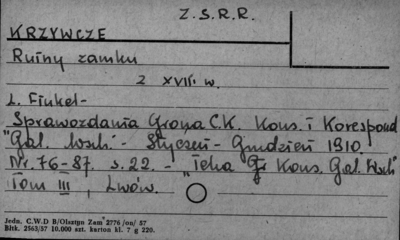 Z.S.R.R.
KRZYWCZE
Ruiny zamku
z XVII. w.
L. Finkel -
Sprawozdania Grona C.K. Kons. i Korespond
"Gal. Wsch." - Styczeń - Grudzień 1910.
Nr. 76-87. s. 22. - "Teka Gr. Kons. Gal. Wsch"
Tom III, Lwów.
Jedn. C.W.D B/Olsztyn Zam 2776 /on/ 57
Bltk. 2563/57 10.000 szt. karton kl. 7 g 220.